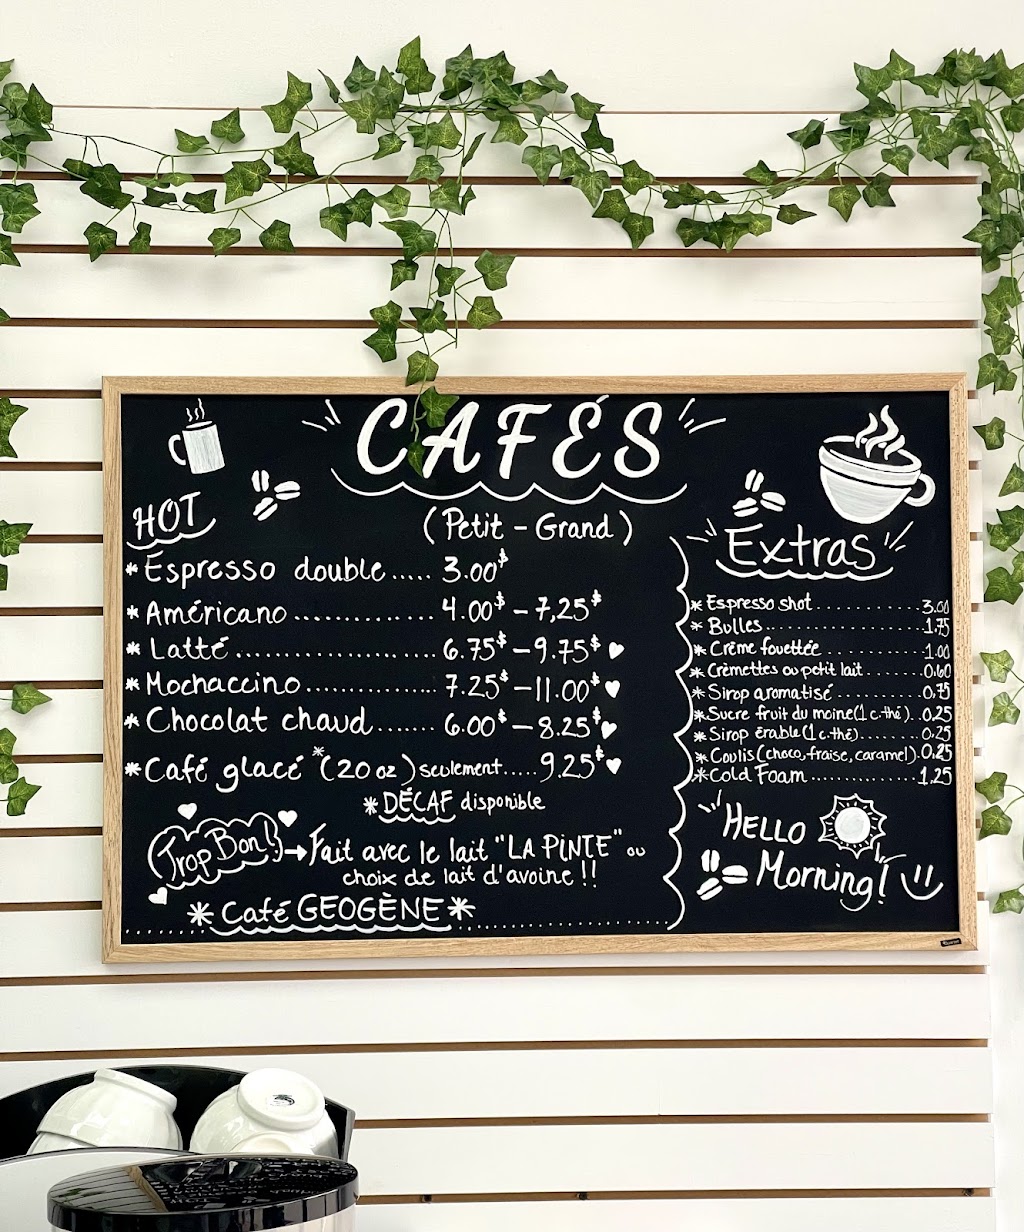 CAFÉS
HOT
(Petit - Grand)
*Éspresso double..... 3.00$
*Américano.............. 4.00$ - 7,25$
*Latté....................... 6.75$ - 9.75$ ♥
*Mochaccino.............. 7.25$ - 11.00$ ♥
*Chocolat chaud....... 6.00$ - 8.25$ ♥
*Café glacé *(20 oz) seulement..... 9.25$ ♥
*DÉCAF disponible
Trop Bon! → Fait avec le lait "LA PiNTE" ou
choix de lait d'avoine !!
* Café GEOGÈNE *
Éxtras
*Espresso shot.............3.00
*Bulles.....................1.75
*Crème fouettée............1.00
*Crèmettes ou petit lait......0.60
*Sirop aromatisé............0.75
*Sucre fruit du moine(1 c.thé)..0.25
*Sirop érable(1 c.thé).........0.25
*Coulis(choco, fraise, caramel).0.25
*Cold Foam................1.25
HELLO
Morning!